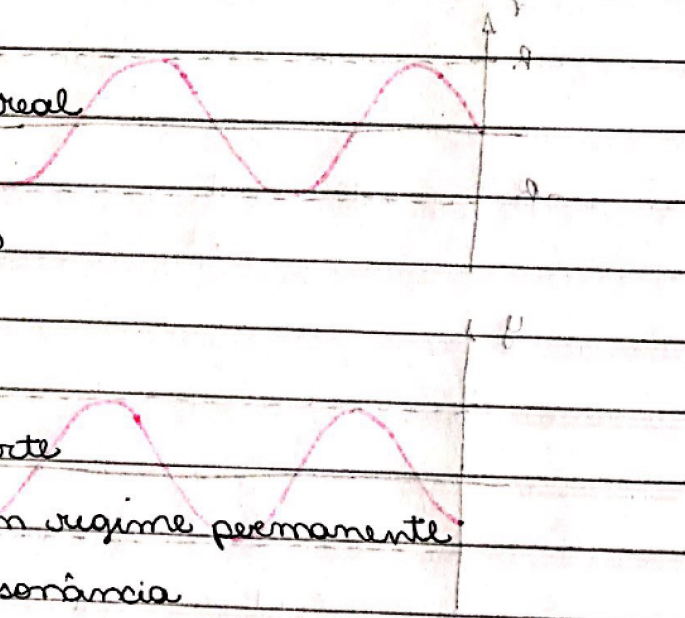 real
rte
n regime permanente
sonância